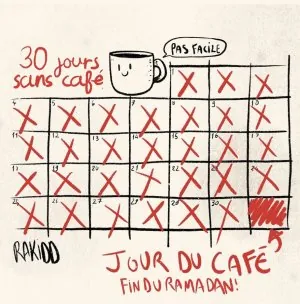 PAS FACILE
30 jours
sans café
1 2 3
4 5 6 7 8 9 10
11 12 13 14 15 16 17
18 19 20 21 22 23 24
25 26 27 28 29 30
RAKIDD
JOUR DU CAFÉ
FIN DU RAMADAN!